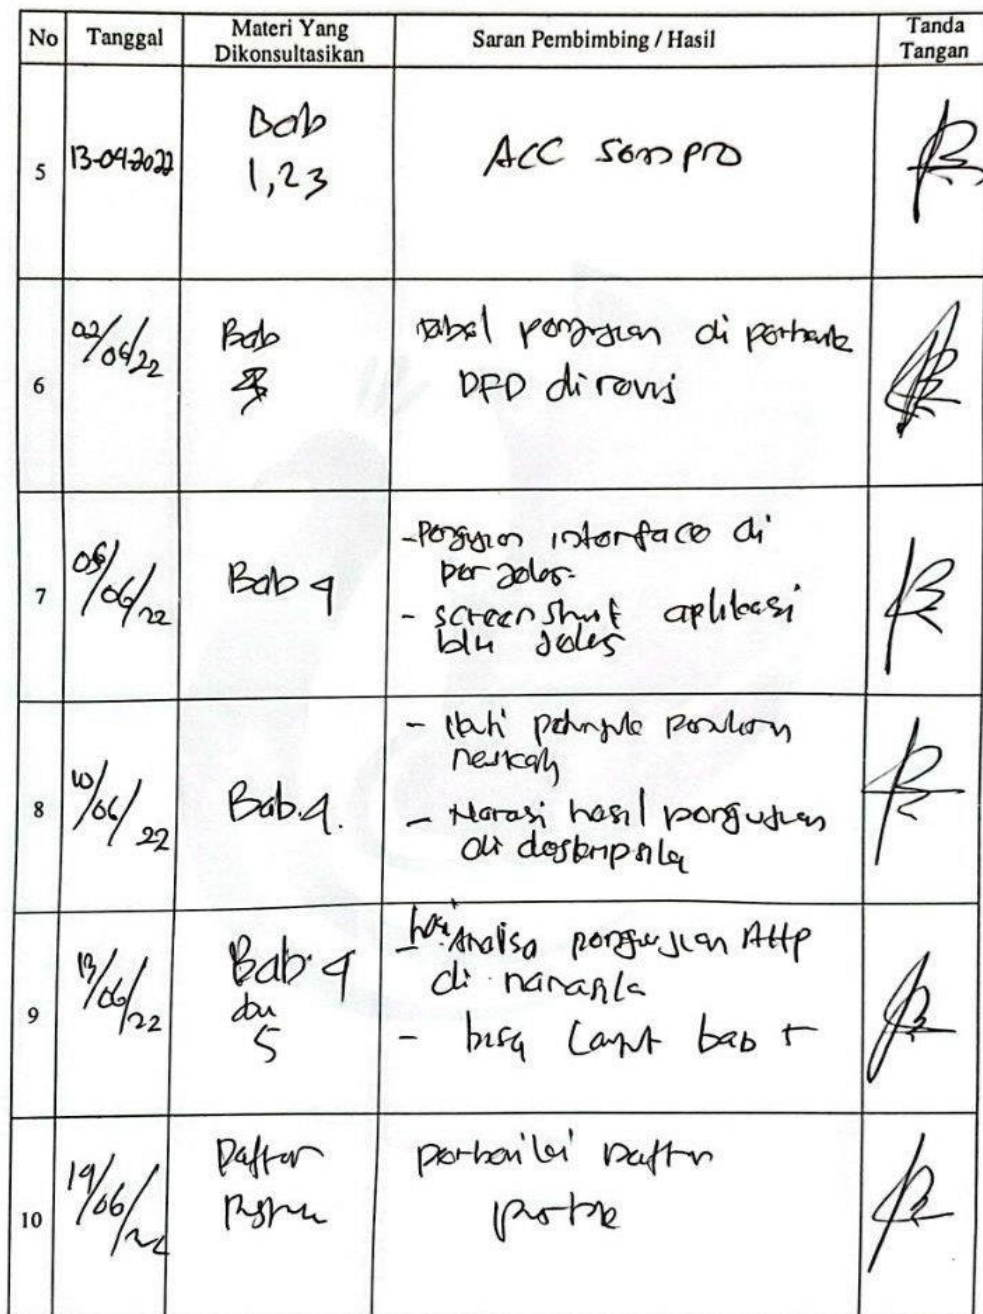 No Tanggal Materi Yang Dikonsultasikan Saran Pembimbing / Hasil Tanda Tangan
5 13-04-2022 Bab 1,2 3 ACC sempro
6 02/06/22 Bab Tabel pengujian di perbaiki
DFD di revisi
7 06/22 Bab 4 - Pengujian interface di
per jelas.
- screen shut aplikasi
blm jelas
8 10/06/22 Bab.4. - Ikuti petunjuk penulisan
naskah
- Narasi hasil pengujian
di deskripsika
9 13/06/22 Bab 4 dan 5 Analisa pengujian
di narasika
- bisa lanjut bab 5
10 19/06/22 Daftar Pustaka perbaiki Daftar
pustaka